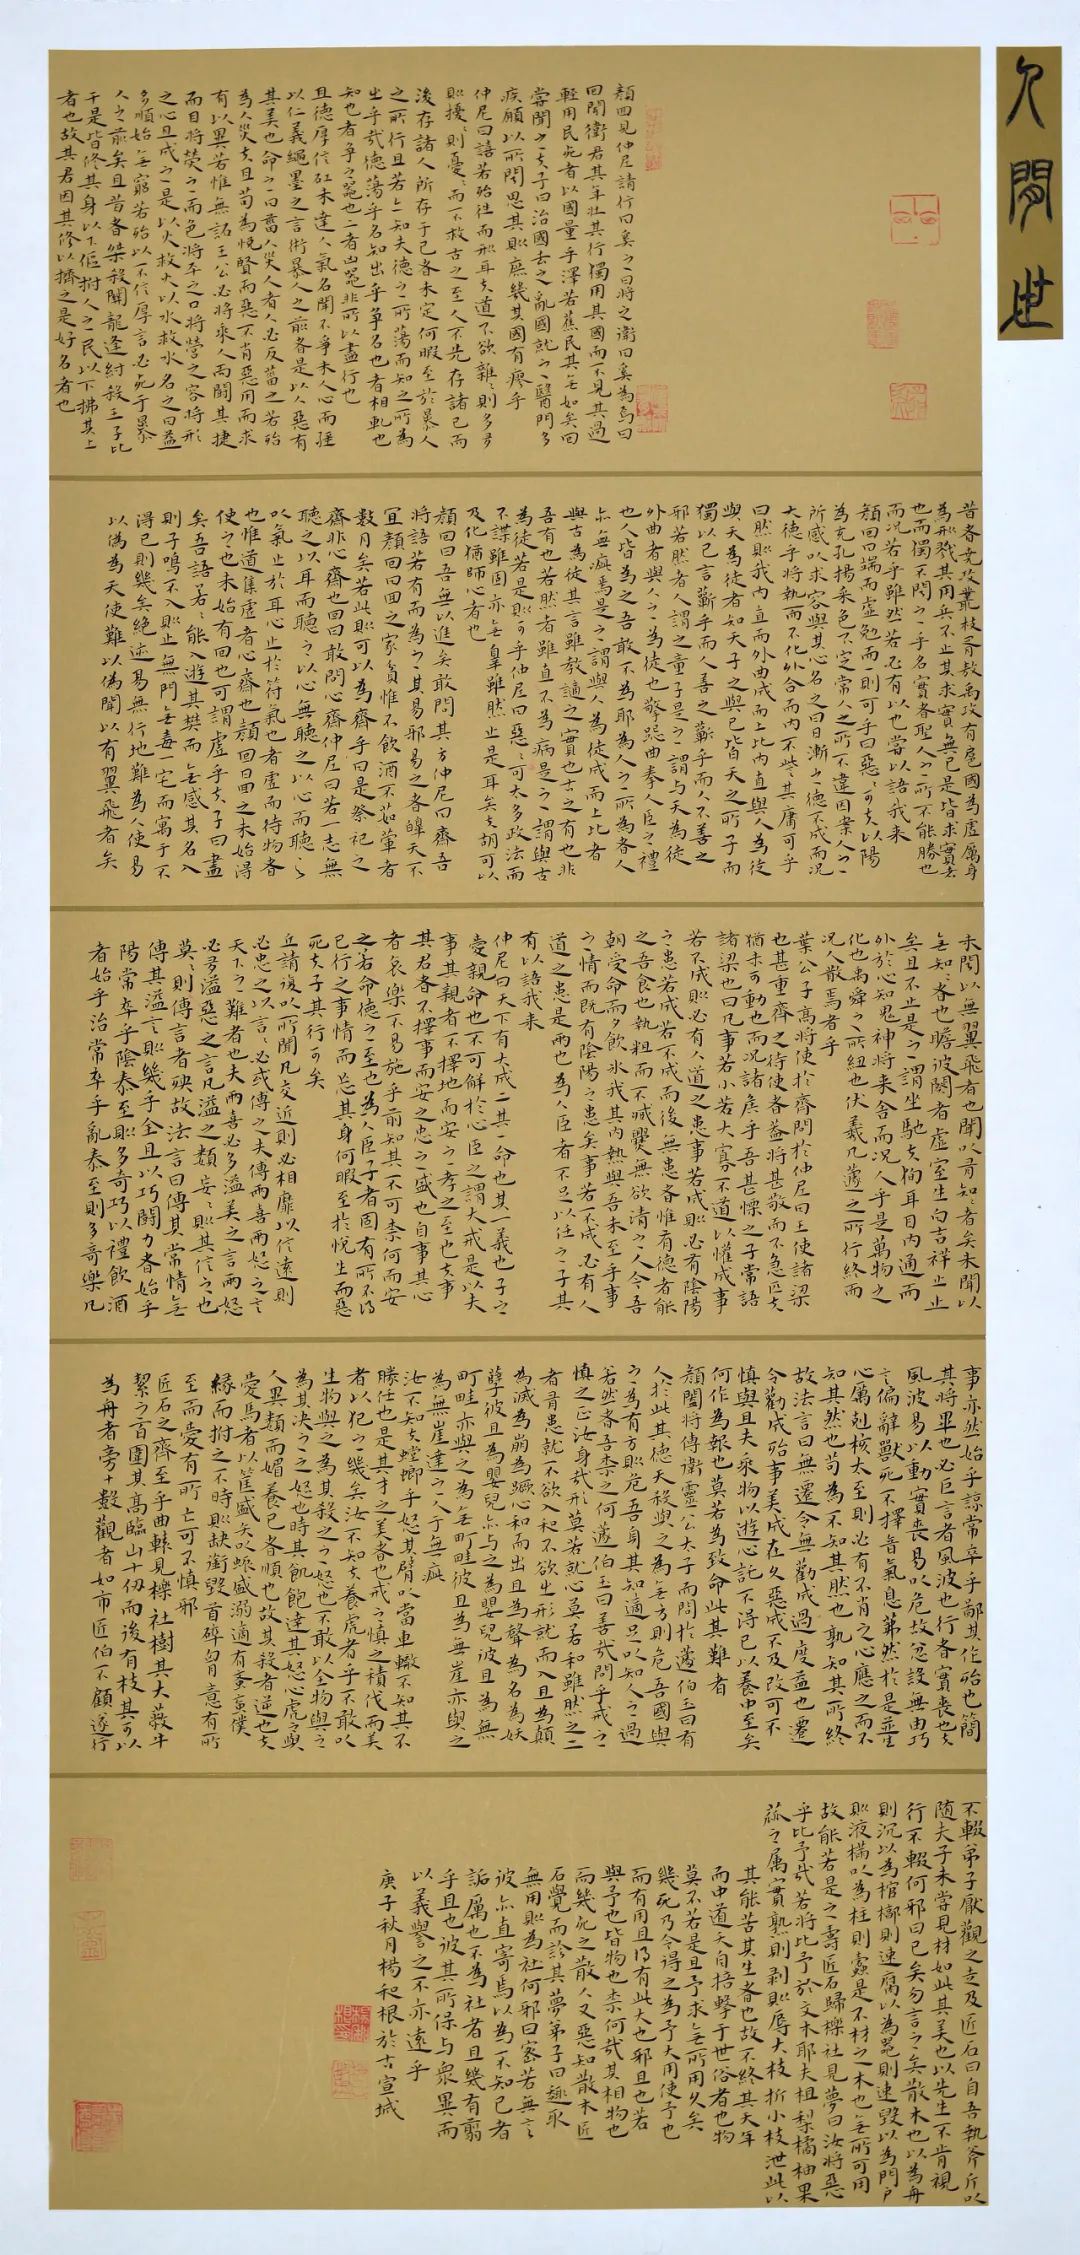 人間世
顏回見仲尼請行曰奚之曰將之衛曰奚為焉曰
回聞衛君其年壯其行獨用其國而不見其過
輕用民死者以國量乎澤若蕉民其無如矣回
嘗聞之夫子曰治國去之亂國就之醫門多
疾願以所聞思其則庶幾其國有瘳乎
仲尼曰譆若殆往而刑耳夫道不欲雜雜則多多
則擾擾則憂憂而不救古之至人先存諸己而
後存諸人所存于己者未定何暇至於暴人
之所行且若亦知夫德之所蕩而知之所為
出乎哉德蕩乎名知出乎爭名也者相軋也
知也者爭之器也二者凶器非所以盡行也
且德厚信矼未達人氣名聞不爭未人心而彊
以仁義繩墨之言術暴人之前者是以人惡有
其美也命之曰菑人災人者人必反菑之若殆
為人災夫且苟為悅賢而惡不肖惡用而求
有以異若惟無詔王公必將乘人而鬪其捷
而目將熒之而色將平之口將營之容將形
之心且成之是以火救火以水救水名之曰益
多順始無窮若殆以不信厚言必死于暴
人之前矣且昔者桀殺關龍逢紂殺王子比
干是皆修其身以下傴拊人之民以下拂其上
者也故其君因其修以擠之是好名者也
昔者堯攻叢枝胥敖禹攻有扈國為虛厲身
為刑戮其用兵不止其求實無已是皆求實者
也而獨不聞之乎名實者聖人之所不能勝也
而況若乎雖然若必有以也嘗以語我來
顏回曰端而虛勉而則可乎曰惡惡可夫以陽
為充孔揚采色不定常人之所不違因案人之
所感以求容與其心名之曰日漸之德不成而況
大德乎將執而不化外合而內不訾其庸可乎
曰然則我內直而外曲成而上比內直與人為徒
與天為徒者知天子之與己皆天之所子而
獨以己言蘄乎而人善之蘄乎而人不善之
邪若然者人謂之童子是之謂與天為徒
外曲者與人之為徒也擎跽曲拳人臣之禮
也人皆為之吾敢不為耶為人之所為者人
亦無疵焉是之謂與人為徒成而上比者
與古為徒其言雖教讁之實也古之有也非
吾有也若然者雖直不為病是之謂與古
為徒若是則可乎仲尼曰惡惡可太多政法而
不諜雖固亦無辠雖然止是耳矣夫胡可以
及化猶師心者也
顏回曰吾無以進矣敢問其方仲尼曰齋吾
將語若有而為之其易邪易之者皞天不
宜顏回曰回之家貧惟不飲酒不茹葷者
數月矣若此則可以為齋乎曰是祭祀之
齋非心齋也回曰敢問心齋仲尼曰若一志無
聽之以耳而聽之以心無聽之以心而聽之
以氣止於耳心止於符氣也者虛而待物者
也惟道集虛者心齋也顏回曰回之未始得
使之也未始有回也可謂虛乎夫子曰盡
矣吾語若若能入遊其樊而無感其名入
則子鳴不入則止無門無毒一宅而寓于不
得已則幾矣絕迹易無行地難為人使易
以偽為天使難以偽聞以有翼飛者矣
未聞以無翼飛者也聞以有知知者矣未聞以
無知知者也瞻彼闋者虛室生白吉祥止止
矣且不止是之謂坐馳夫徇耳目內通而
外於心知鬼神將來舍而況人乎是萬物之
化也禹舜之所紐也伏羲几蘧之所行終而
況人散焉者乎
葉公子高將使於齊問於仲尼曰王使諸梁
也甚重齊之待使者蓋將甚敬而不急匹夫
猶未可動也而況諸侯乎吾甚慄之子常語
諸梁也曰凡事若小若大寡不道以懽成事
若不成則必有人道之患事若成則必有陰陽
之患若成若不成而後無患者惟有德者能
之吾食也執粗而不臧爨無欲清之人今吾
朝受命而夕飲冰我其內熱與吾未至乎事
之情而既有陰陽之患矣事若不成必有人
道之患是兩也為人臣者不足以任之子其
有以語我來
仲尼曰天下有大戒二其一命也其一義也子之
愛親命也不可解於心臣之謂大戒是以夫
事其親者不擇地而安之孝之至也夫事
其君者不擇事而安之忠之盛也自事其心
者哀樂不易施乎前知其不可奈何而安
之若命德之至也為人臣子者固有所不得
已行之事情而忘其身何暇至於悅生而惡
死夫子其行可矣
丘請復以所聞凡交近則必相靡以信遠則
必忠之以言言必或傳之夫傳兩喜兩怒之言
天下之難者也夫兩喜必多溢美之言兩怒
必多溢惡之言凡溢之類妄妄則其信之也
莫莫則傳言者殃故法言曰傳其常情無
傳其溢言則幾乎全且以巧鬪力者始乎
陽常卒乎陰泰至則多奇巧以禮飲酒
者始乎治常卒乎亂泰至則多奇樂凡
事亦然始乎諒常卒乎鄙其作始也簡
其將畢也必巨言者風波也行者實喪也夫
風波易以動實喪易以危故忿設無由巧
言偏辭獸死不擇音氣息茀然於是並生
心厲剋核太至則必有不肖之心應之而不
知其然也苟為不知其然也孰知其所終
故法言曰無遷令無勸成過度益也遷
令勸成殆事美成在久惡成不及改可不
慎與且夫乘物以遊心託不得已以養中至矣
何作為報也莫若為致命此其難者
顏闔將傅衛靈公太子而問於蘧伯玉曰有
人於此其德天殺與之為無方則危吾國與
之為有方則危吾身其知適足以知人之過
若然者吾柰之何蘧伯玉曰善哉問乎戒之
慎之正汝身哉形莫若就心莫若和雖然之二
者有患就不欲入和不欲出形就而入且為顛
為滅為崩為蹶心和而出且為聲為名為妖
孽彼且為嬰兒亦與之為嬰兒彼且為無
町畦亦與之為無町畦彼且為無崖亦與之
為無崖達之入于無疵
汝不知夫螳螂乎怒其臂以當車轍不知其不
勝任也是其才之美者也戒之慎之積伐而美
者以犯之幾矣汝不知夫養虎者乎不敢以
生物與之為其殺之之怒也不敢以全物與之
為其決之之怒也時其飢飽達其怒心虎之與
人異類而媚養己者順也故其殺者逆也夫
愛馬者以筐盛矢以蜄盛溺適有蚤蝱僕
緣而拊之不時則缺銜毀首碎胷意有所
至而愛有所亡可不慎邪
匠石之齊至乎曲轅見櫟社樹其大蔽牛
絜之百圍其高臨山十仞而後有枝其可以
為舟者旁十數觀者如市匠伯不顧遂行
不輟弟子厭觀之走及匠石曰自吾執斧斤以
隨夫子未嘗見材如此其美也以先生不肯視
行不輟何邪曰已矣勿言之矣散木也以為舟
則沉以為棺槨則速腐以為器則速毀以為門戶
則液樠以為柱則蠹是不材之木也無所可用
故能若是之壽匠石歸櫟社見夢曰汝將惡
乎比予哉若將比予於文木耶夫柤梨橘柚果
蓏之屬實熟則剝則辱大枝折小枝泄此以
其能苦其生者也故不終其天年
而中道夭自掊擊于世俗者也物
莫不若是且予求無所用久矣
幾死乃今得之為予大用使予也
而有用且得有此大也邪且也若
與予也皆物也柰何哉其相物也
而幾死之散人又惡知散木匠
石覺而診其夢弟子曰趣取
無用則為社何邪曰密若無言
彼亦直寄焉以為不知己者
詬厲也不為社者且幾有翦
乎且也彼其所保与衆異而
以義譽之不亦遠乎
庚子秋月楊和根於古宣城